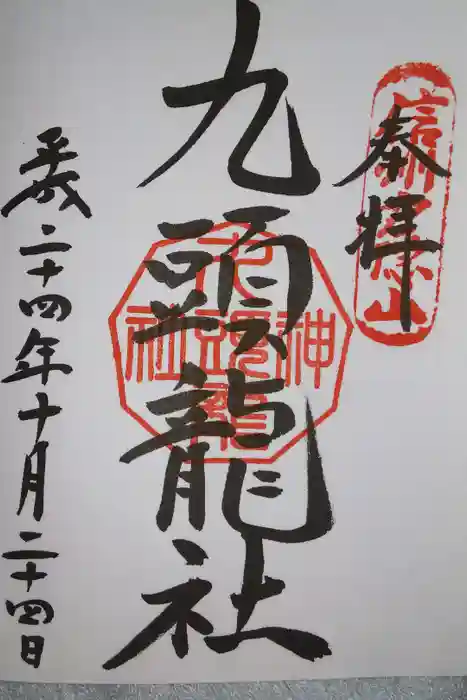 奉拝
信州戸隠山
九頭龍社
九頭龍神社
平成二十四年十月二十四日